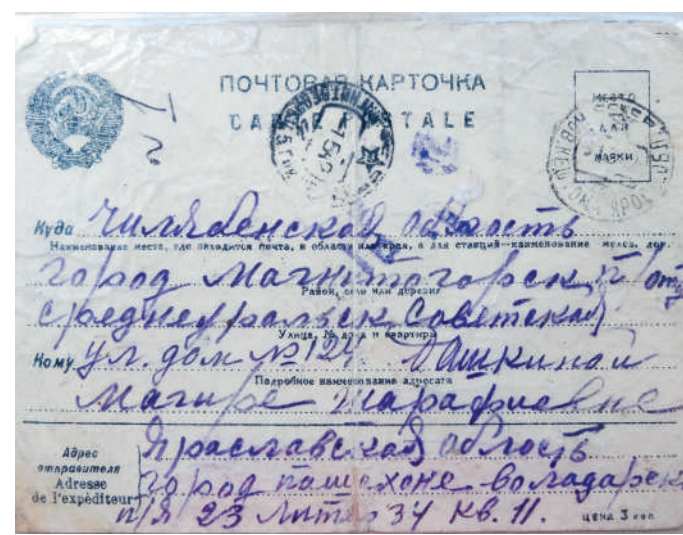 ПОЧТОВАЯ КАРТОЧКА
CARTE POSTALE
МЕСТО
ДЛЯ
МАРКИ
Куда Чилябенская область
Наименование места, где находится почта, и области или края, а для станций—наименование железн. дор.
город Магнитогорск п/от
Район, село или деревня
Среднеуральск Советская
Улица, № дома и квартиры
Кому ул. дом № 124 Башкиной
Подробное наименование адресата
Магире Шарафиевне
Адрес отправителя
Adresse
de l'expéditeur
Яраславская область
город пашехоне воладарск
п/я 23 Литер 34 кв. 11.
ЦЕНА 3 коп.